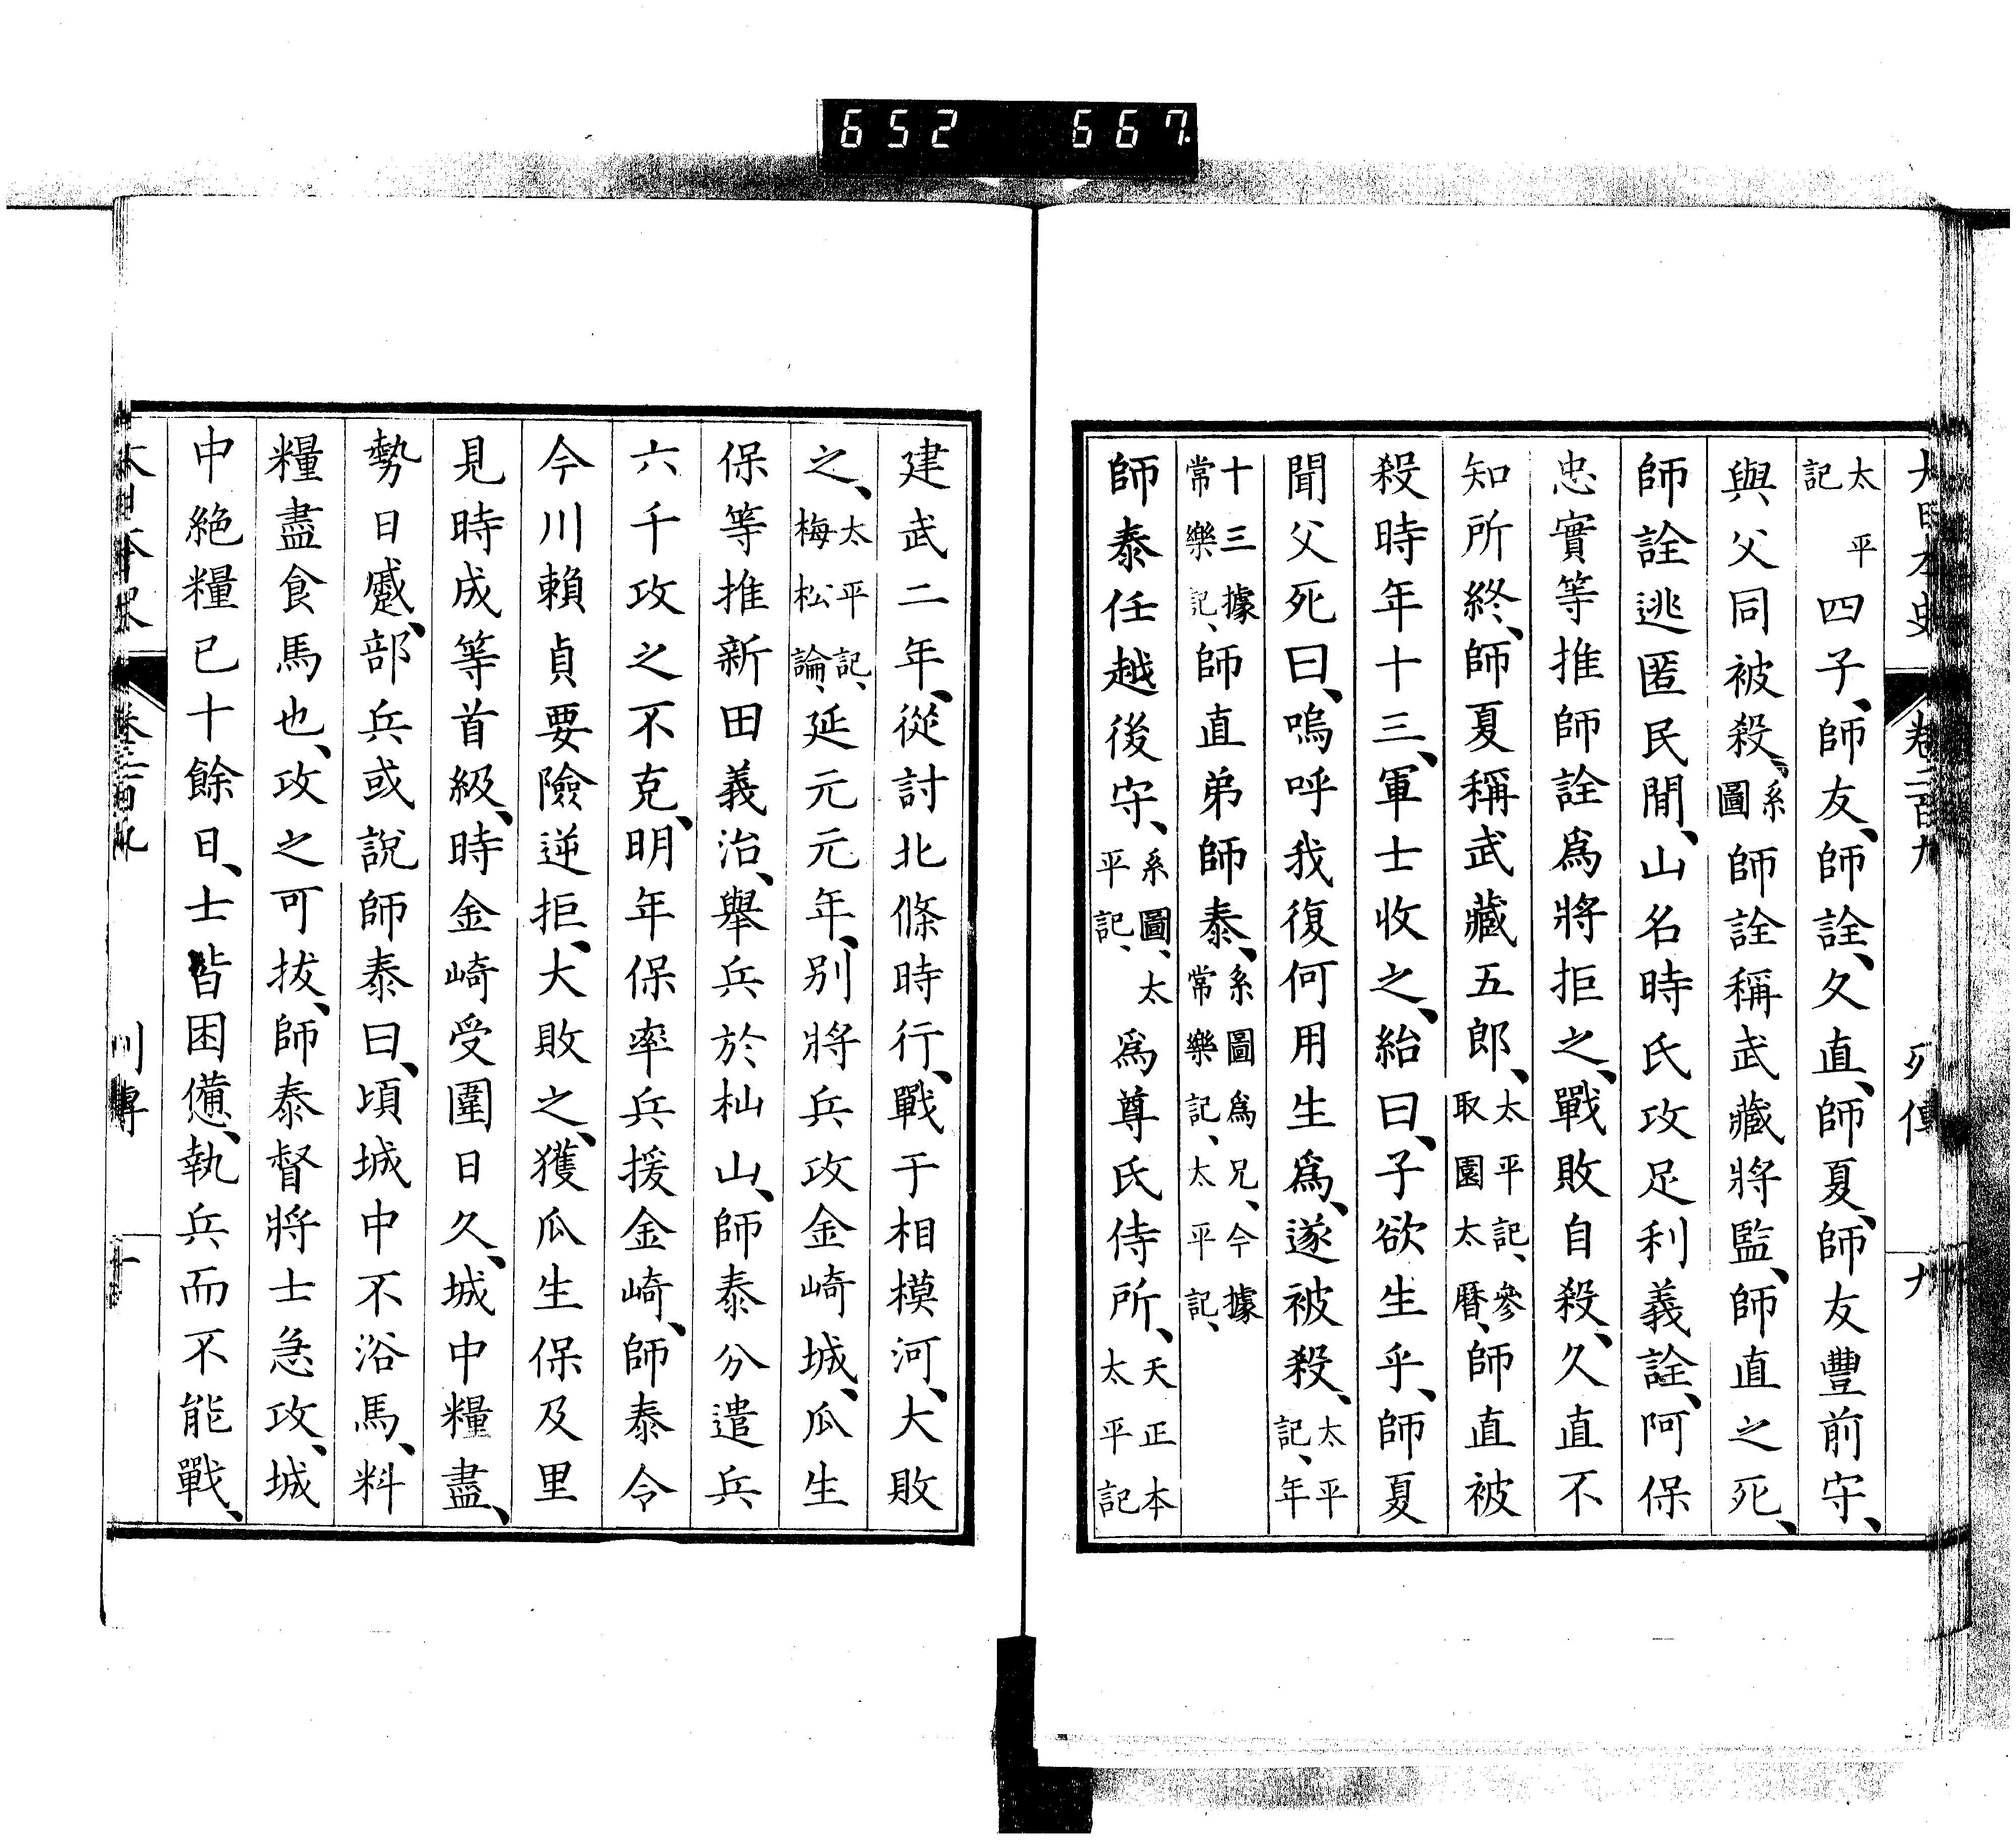 652 667.
大日本史 卷二百九 列傳 九
太平記 四子、師友、師詮、久直、師夏、師友豐前守、
與父同被殺、系圖 師詮稱武藏將監、師直之死、
師詮逃匿民間、山名時氏攻足利義詮、阿保
忠實等推師詮爲將拒之、戰敗自殺、久直不
知所終、師夏稱武藏五郎、太平記、參取園太曆、師直被
殺時年十三、軍士收之、紿曰、子欲生乎、師夏
聞父死曰、嗚呼我復何用生爲、遂被殺、太平記、年
十三據常樂記、師直弟師泰、系圖爲兄、今據常樂記、太平記、
師泰任越後守、系圖、太平記、爲尊氏侍所、天正本太平記
建武二年、從討北條時行、戰于相模河、大敗
之、太平記、梅松論、延元元年、別將兵攻金崎城、瓜生
保等推新田義治、舉兵於杣山、師泰分遣兵
六千攻之不克、明年保率兵援金崎、師泰令
今川賴貞要險逆拒、大敗之、獲瓜生保及里
見時成等首級、時金崎受圍日久、城中糧盡、
勢日蹙、部兵或說師泰曰、頃城中不浴馬、料
糧盡食馬也、攻之可拔、師泰督將士急攻、城
中絕糧已十餘日、士皆困憊、執兵而不能戰、
大日本史 卷二百九 列傳 十